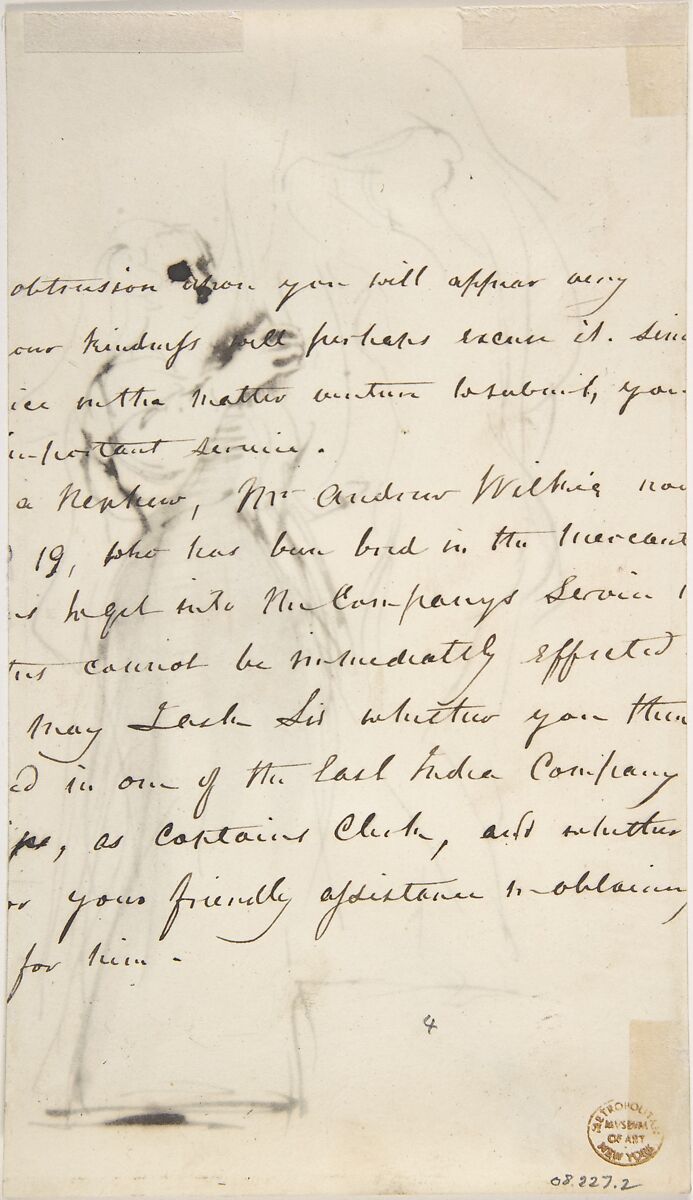 obtrusion upon you will appear very
our kindness will perhaps excuse it. Sinc
ice in the matter venture to submit, you
important service.
a Nephew, Mr Andrew Wilkie now
19, who has been bred in the Mercant
to get into the Companys Service
cannot be immediately effected
may I ask Sir whether you thin
ed in one of the East India Company
, as Captains Clerk, and whether
your friendly assistance in obtaining
for him -
4
METROPOLITAN MUSEUM OF ART NEW YORK
08.227.2